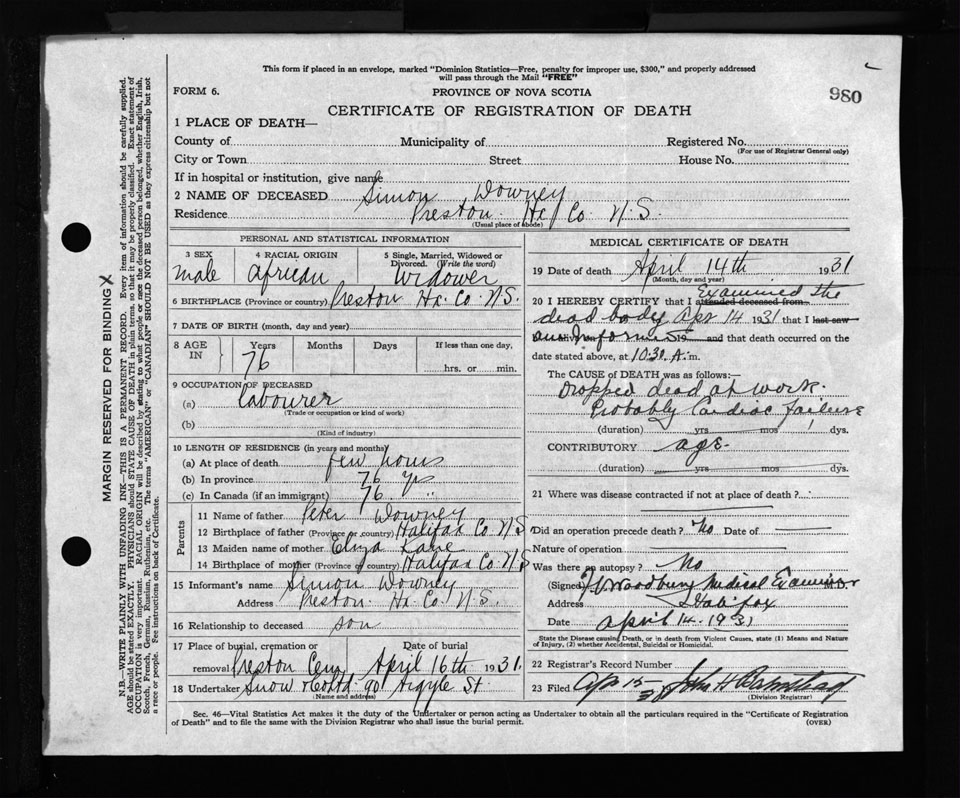 This form if placed in an envelope, marked "Dominion Statistics—Free, penalty for improper use, $300," and properly addressed
will pass through the Mail "FREE"
980
FORM 6.
PROVINCE OF NOVA SCOTIA
CERTIFICATE OF REGISTRATION OF DEATH
1 PLACE OF DEATH—
County of Municipality of Registered No.
(For use of Registrar General only)
City or Town Street House No.
If in hospital or institution, give name
2 NAME OF DECEASED Simon Downey
Residence Preston Hx. Co. N.S.
(Usual place of abode)
PERSONAL AND STATISTICAL INFORMATION
3 SEX male
4 RACIAL ORIGIN african
5 Single, Married, Widowed or Divorced. (Write the word) Widower
6 BIRTHPLACE (Province or country) Preston Hx. Co. N.S.
7 DATE OF BIRTH (month, day and year)
8 AGE IN Years Months Days If less than one day,
76 hrs. or min.
9 OCCUPATION OF DECEASED
(a) Labourer
(Trade or occupation or kind of work)
(b)
(Kind of industry)
10 LENGTH OF RESIDENCE (in years and months)
(a) At place of death few hours
(b) In province 76 yrs
(c) In Canada (if an immigrant) 76 "
Parents
11 Name of father Peter Downey
12 Birthplace of father (Province or country) Halifax Co N.S
13 Maiden name of mother Eliza Lane
14 Birthplace of mother (Province or country) Halifax Co. N.S
15 Informant's name Simon Downey
Address Preston. Hx. Co. N.S.
16 Relationship to deceased son
17 Place of burial, cremation or removal Preston Cem
Date of burial April 16th 1931.
18 Undertaker Snow & Co Ltd. 90 Argyle St
(Name and address)
MEDICAL CERTIFICATE OF DEATH
19 Date of death April 14th 1931
(Month, day and year)
20 I HEREBY CERTIFY that I attended deceased from Examined the
dead body Apr 14 1931 that I last saw
19 and that death occurred on the
date stated above, at 10:30. A. m.
The CAUSE of DEATH was as follows:—
Dropped dead at work.
Probably Cardiac failure
(duration) yrs mos dys.
CONTRIBUTORY age.
(duration) yrs mos dys.
21 Where was disease contracted if not at place of death?
Did an operation precede death? No Date of
Nature of operation
Was there an autopsy? No
(Signed) Woodbury Medical Examiner
Address Halifax
Date April 14. 1931
State the Disease causing Death, or in death from Violent Causes, state (1) Means and Nature
of Injury, (2) whether Accidental, Suicidal or Homicidal.
22 Registrar's Record Number
23 Filed Apr 15 31 John H
(Division Registrar)
Sec. 46—Vital Statistics Act makes it the duty of the Undertaker or person acting as Undertaker to obtain all the particulars required in the "Certificate of Registration
of Death" and to file the same with the Division Registrar who shall issue the burial permit. (OVER)
MARGIN RESERVED FOR BINDING X
N.B.—WRITE PLAINLY WITH UNFADING INK—THIS IS A PERMANENT RECORD. Every item of information should be carefully supplied.
AGE should be stated EXACTLY. PHYSICIANS should STATE CAUSE OF DEATH in plain terms, so that it may be properly classified. Exact statement of
OCCUPATION is very important. RACIAL ORIGIN will be described by stating to what people or race the deceased person belonged, whether English, Irish,
Scotch, French, German, Russian, Ruthenian, etc. The terms "AMERICAN" or "CANADIAN" SHOULD NOT BE USED as they express citizenship but not
a race or people. Fee instructions on back of Certificate.